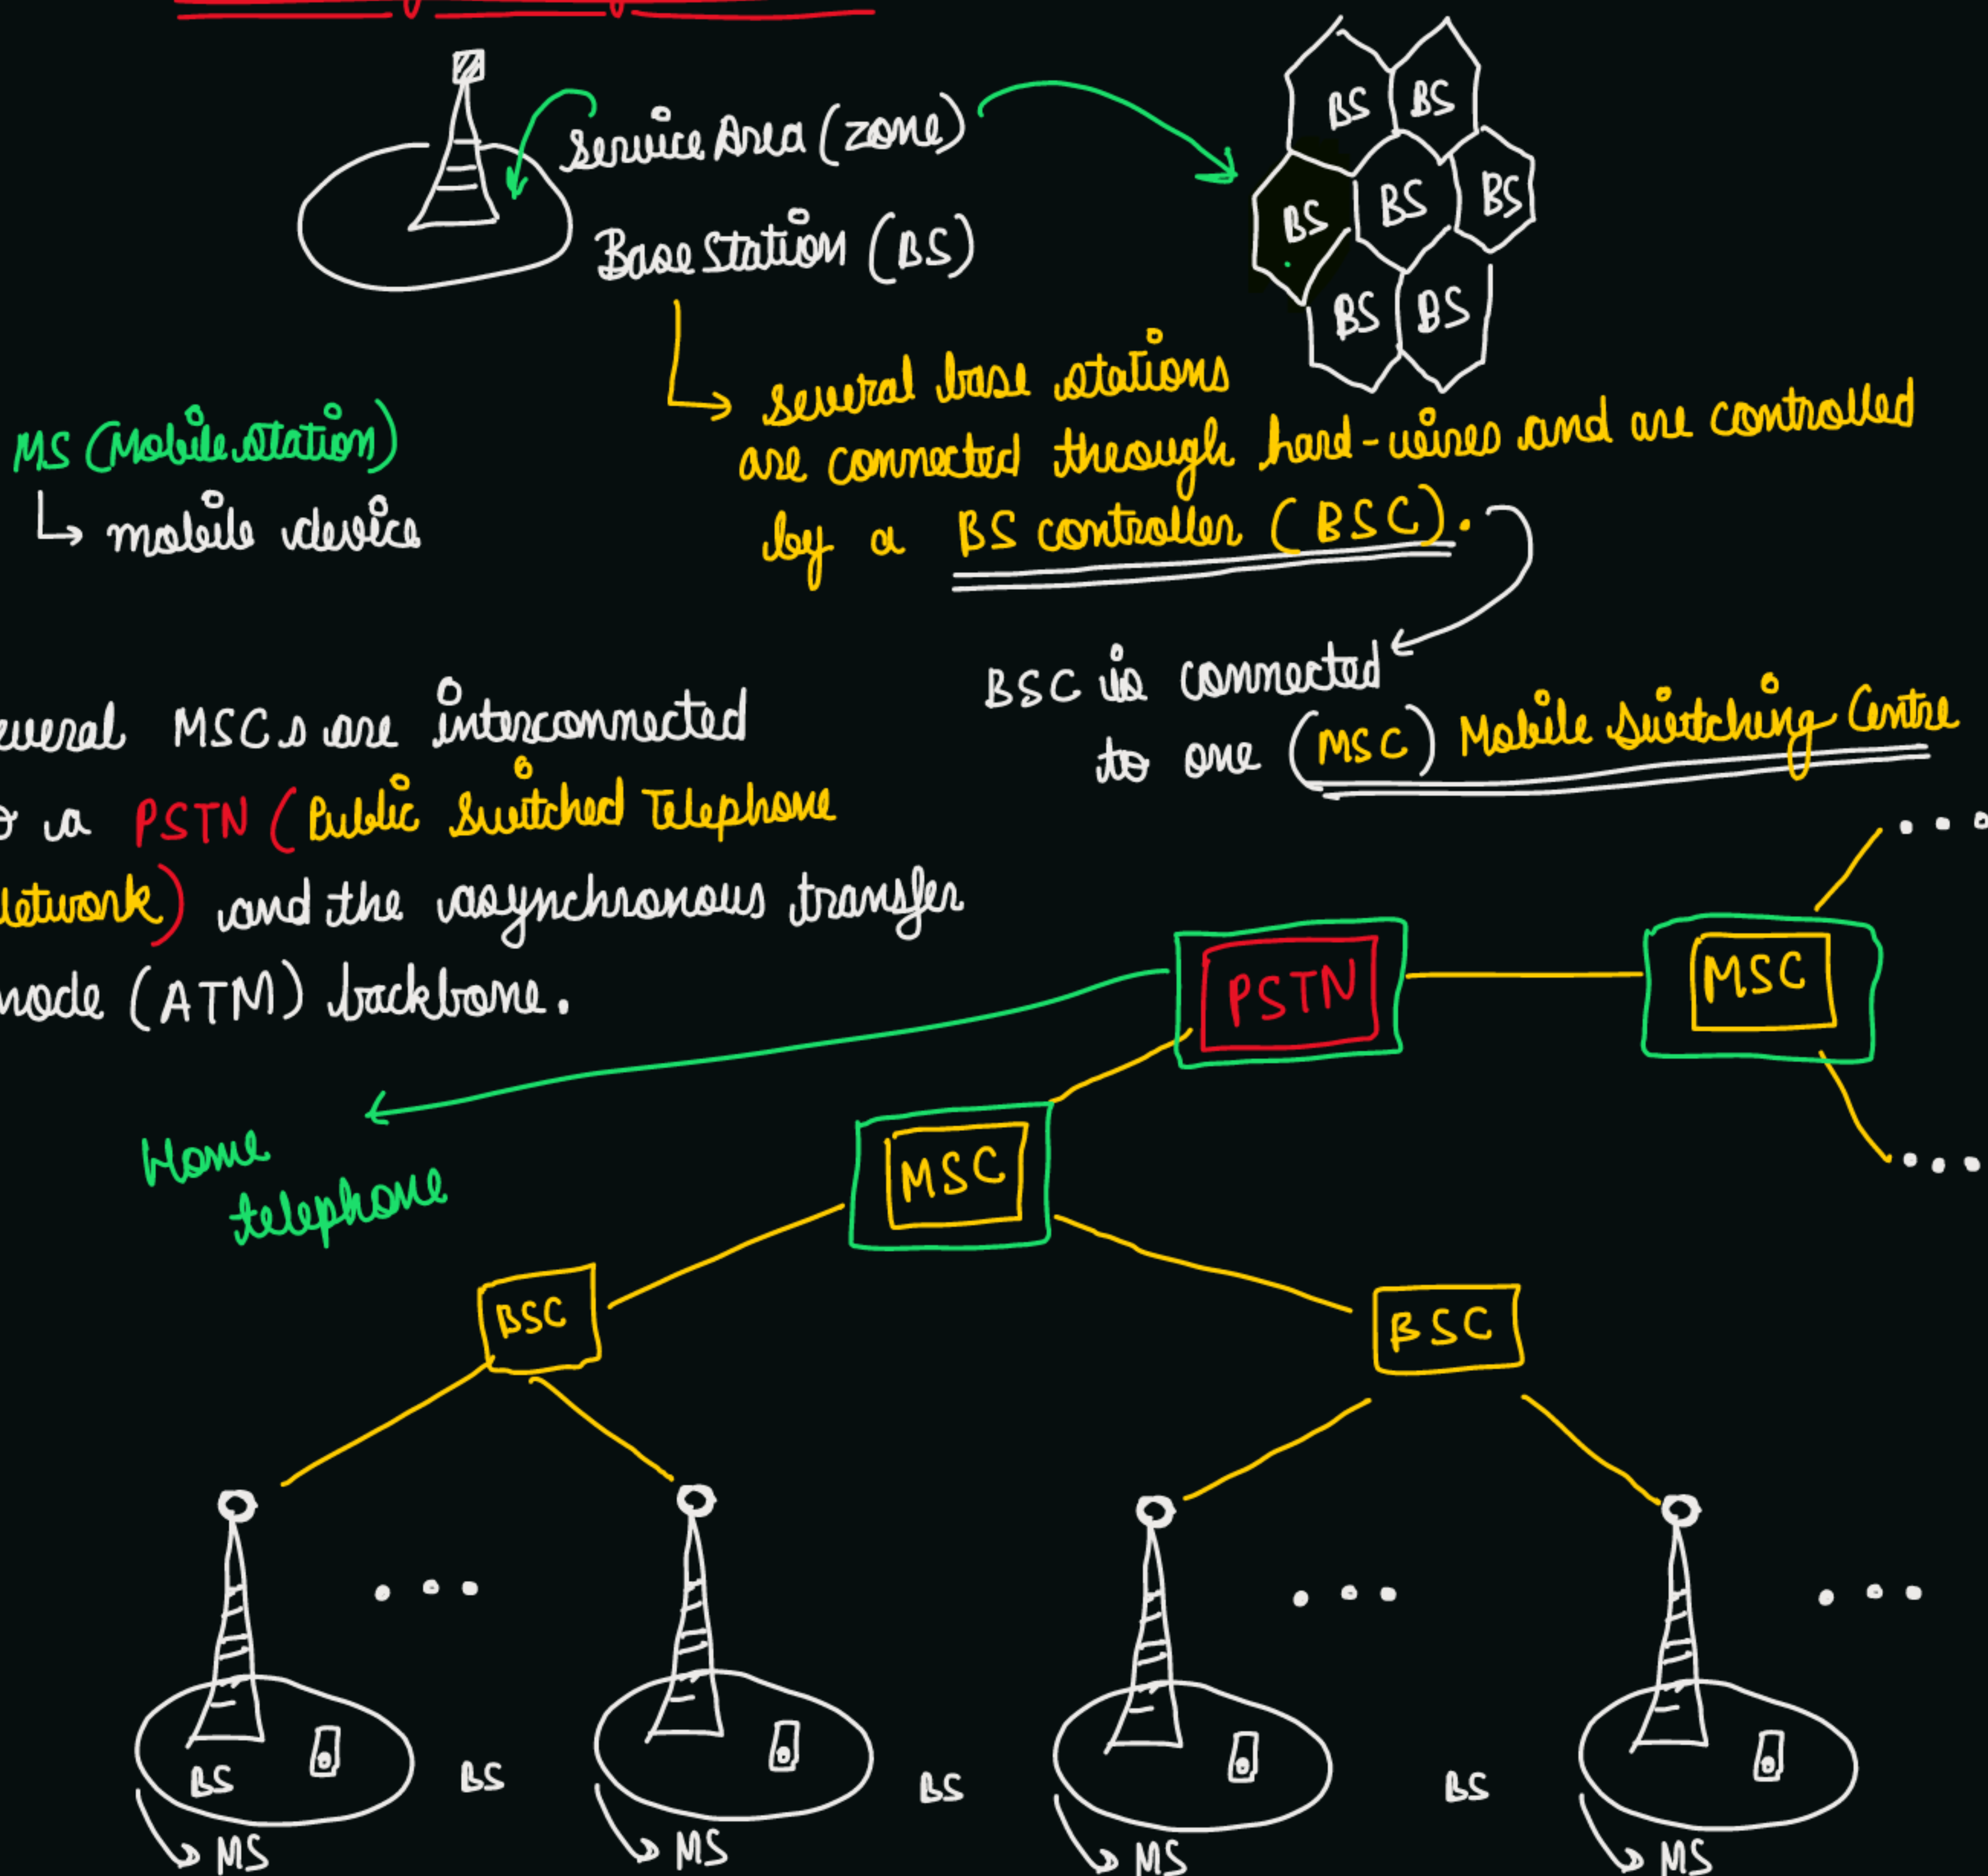 Service Area (zone)
Base Station (BS)
BS BS
BS BS BS
BS BS
several base stations
are connected through hard-wires and are controlled
by a BS controller (BSC).
MS (Mobile station)
mobile device
BSC is connected
to one (MSC) Mobile Switching Centre
everal MSCs are interconnected
o a PSTN (Public Switched Telephone
etwork) and the asynchronous transfer
mode (ATM) backbone.
PSTN
MSC
Home
telephone
MSC
BSC
BSC
...
...
... ... ...
BS BS BS BS
MS MS MS MS